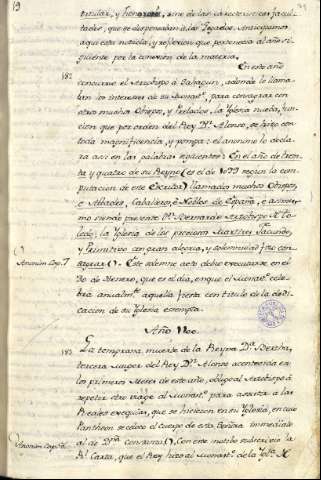 19
titulas, y honores, sino de las caracteres con facul-
tades, que se dispensaban à los Legados. Anticipamos
aqui esta noticia, y reflexion que pertenecia al año si-
guiente por la conexion de la materia.
En este año
182
concurrio el Arzobispo à Sahagun, adonde lo llama-
ban los intereses de su Monast.º, para consagrar con
otros muchos Obispos, y Prelados, la Yglesia nueba, fun-
cion que por orden del Rey D.n Alonso, se hizo con
toda magnificencia, y pompa: el anonimo lo decla-
ra asi en las palabras siguientes: En el año de trein-
ta y quatro de su Reyno (es el de 1099 segun la com-
putacion de este Escritor) llamados muchos Obispos,
è Abbades, Cabaleros, è Nobles de España, è assimes-
mo siendo presente D.n Bernardo Arzobispo de Tole-
do; la Yglesia de los preciosos Martires Facundo,
y Primitivo con gran alegria, y solemnidad fizo con-
Anonim Cap. 7
sagrar (). Este solemne acto debio executarse en el
de Henero, que es el dia, en que el Monast.º cele-
bra anualm.te aquella fiesta con titulo de la dedi-
cacion de su Yglesia esempta.
Año 1100.
183
La temprana muerte de la Reyna D.ª Bertha,
tercera muger del Rey D.n Alonso acontecida en
los primeros Meses de este año, obligo al Arzobispo à
repetir otro viage al Monast.º para asistir à las
Reales exequias, que se hicieron en su Yglesia, en cuio
Pantheon se coloco el cuerpo de esta Señora inmediato
Anonim Cap.
al de D.ª Constanza (). Con este motivo subscribio la
R.l Carta, que el Rey hizo al Monast.º de la Ygl.ª de